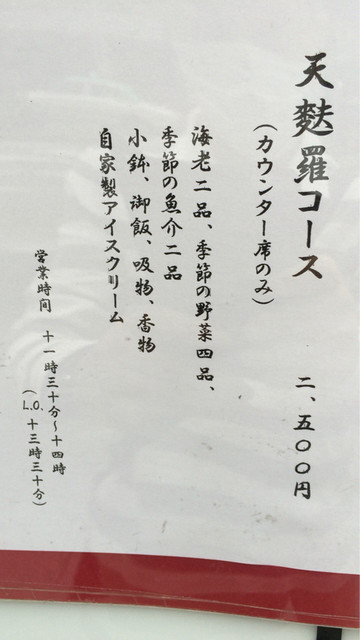 天麩羅コース 二、五〇〇円
（カウンター席のみ）
海老二品、季節の野菜四品、
季節の魚介二品
小鉢、御飯、吸物、香物
自家製アイスクリーム
営業時間 十一時三十分～十四時
（L.O.十三時三十分）